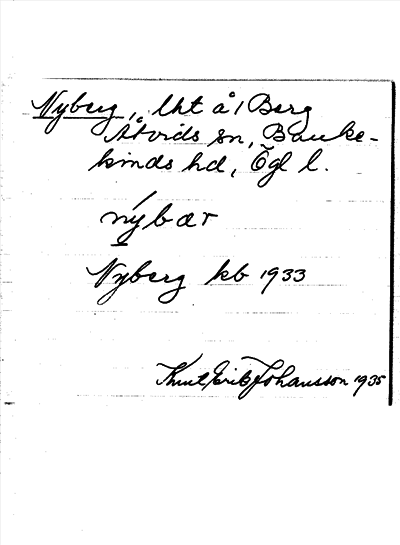 Nyberg, lht å 1 Berg
Åtvids sn, Banke-
kinds hd, Ögl l.
nýbær
Nyberg kb 1933
Knut Erik Johansson 1935